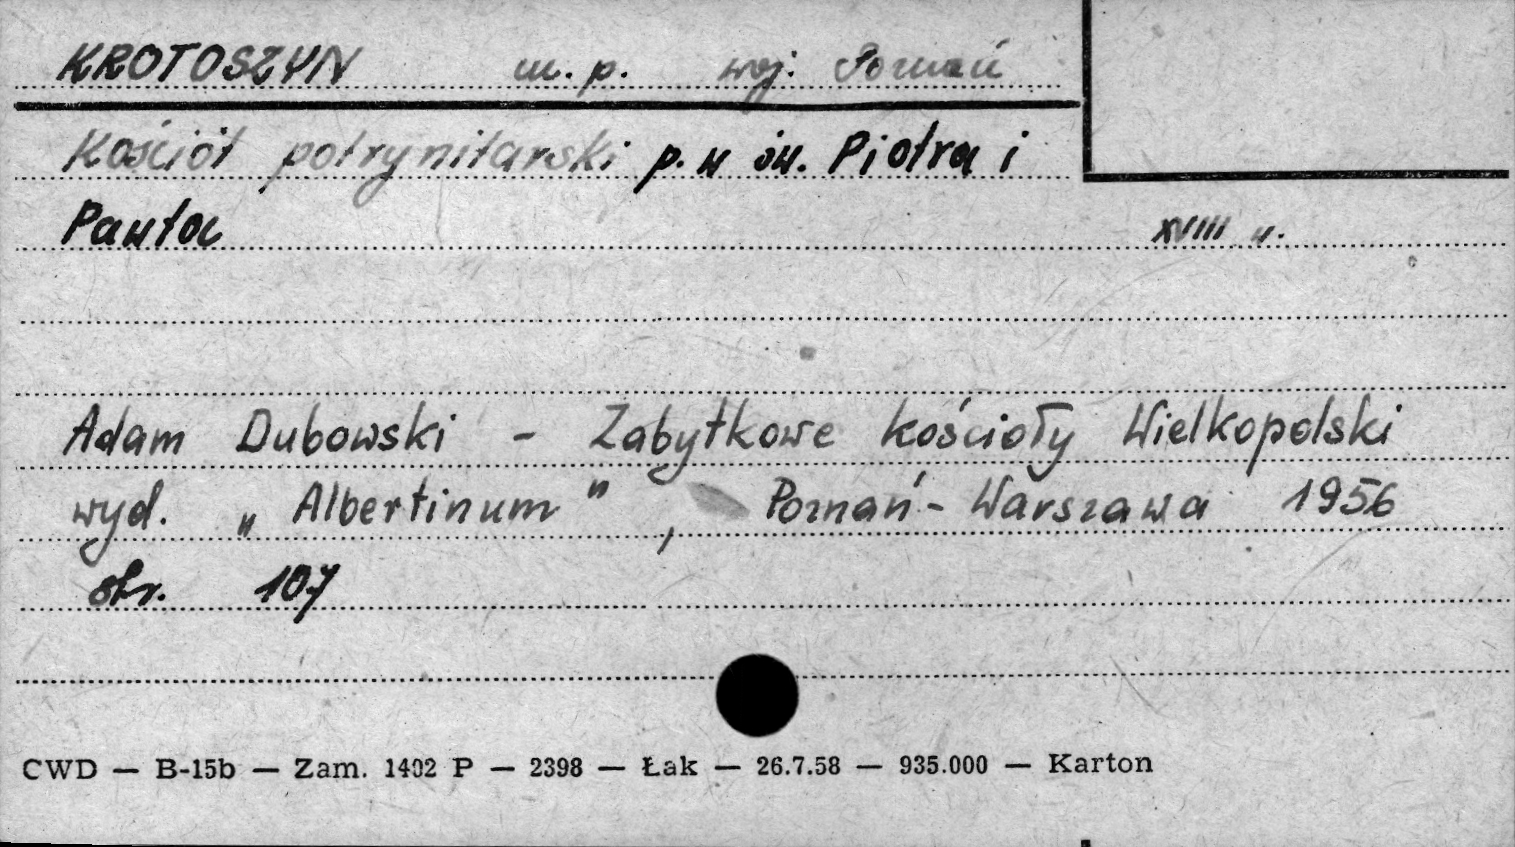 KROTOSZYN m. p. woj. Poznań
Kościół potrynitarski p. w św. Piotra i
Pawła XVIII w.
Adam Dubowski - Zabytkowe kościoły Wielkopolski
wyd. „Albertinum", Poznań - Warszawa 1956
str. 107
CWD — B-15b — Zam. 1402 P — 2398 — Łak — 26.7.58 — 935.000 — Karton